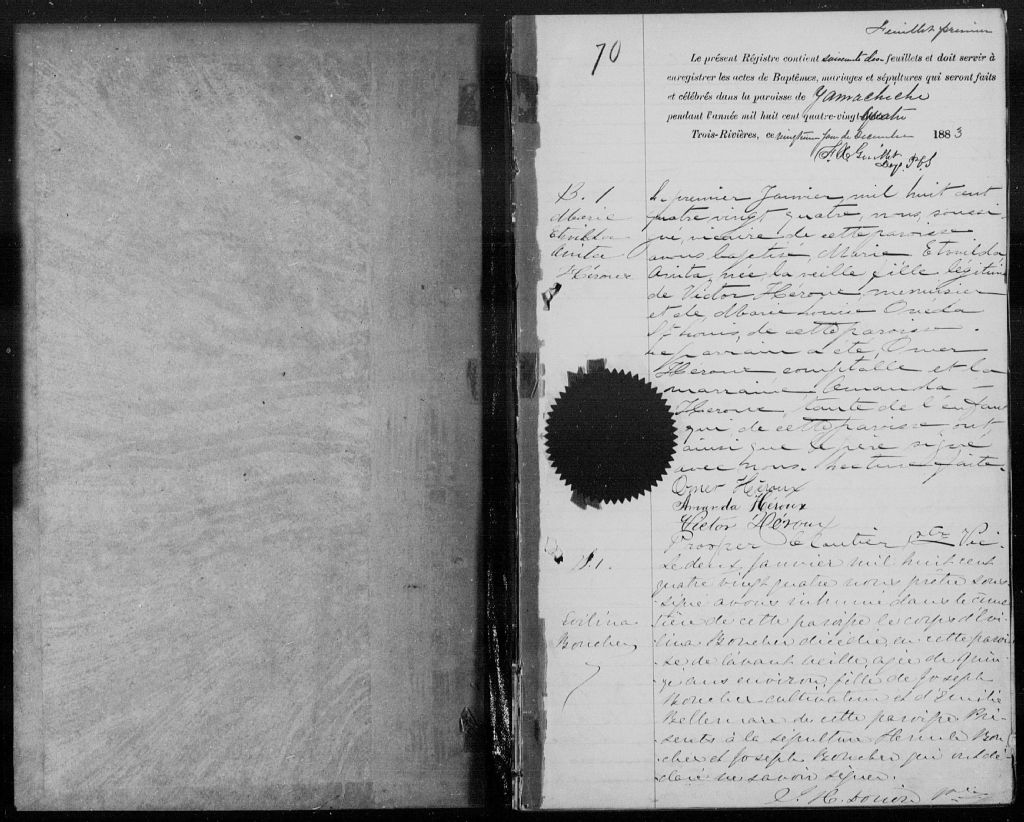 Feuillet premier
70
Le présent Régistre contient soixante deux feuillets et doit servir à
enregistrer les actes de Baptêmes, mariages et sépultures qui seront faits
et célébrés dans la paroisse de Yamachiche
pendant l'année mil huit cent quatre-vingt quatre
Trois-Rivières, ce jour de Decembre 1883
F. X. Guillet
Dep. P.C.S
B. 1
Marie
Etvilda
Anita
Héroux
Le premier Janvier mil huit cent
quatre vingt quatre, nous, soussi-
gné, vicaire de cette paroisse
avons baptisé Marie Etvilda
Anita, née la veille, fille légitime
de Victor Héroux, menuisier
et de Marie Louise Oneda
St Louis, de cette paroisse.
Le parrain a été, Omer
Héroux comptable et la
marraine Amanda
Héroux, tante de l'enfant
qui de cette paroisse, ont
ainsi que le père signé
avec nous. Lecture faite.
Omer Héroux
Amanda Héroux
Victor Héroux
Prosper Cloutier ptre Vic.
S. 1.
Evilina
Boucher
Le deux Janvier mil huit cent
quatre vingt quatre nous prêtre sous-
signé avons inhumé dans le cime-
tière de cette paroisse le corps d'Evi-
lina Boucher décédée, en cette parois-
se, de l'avant veille, agée de quin-
ze ans environ, fille de Joseph
Boucher cultivateur et d'Emilie
Bellemare de cette paroisse Pré-
sents à la sépulture Hercule Bou-
cher et Joseph Boucher qui ont dé-
claré ne savoir signer.
J. H. Dorion Ptre